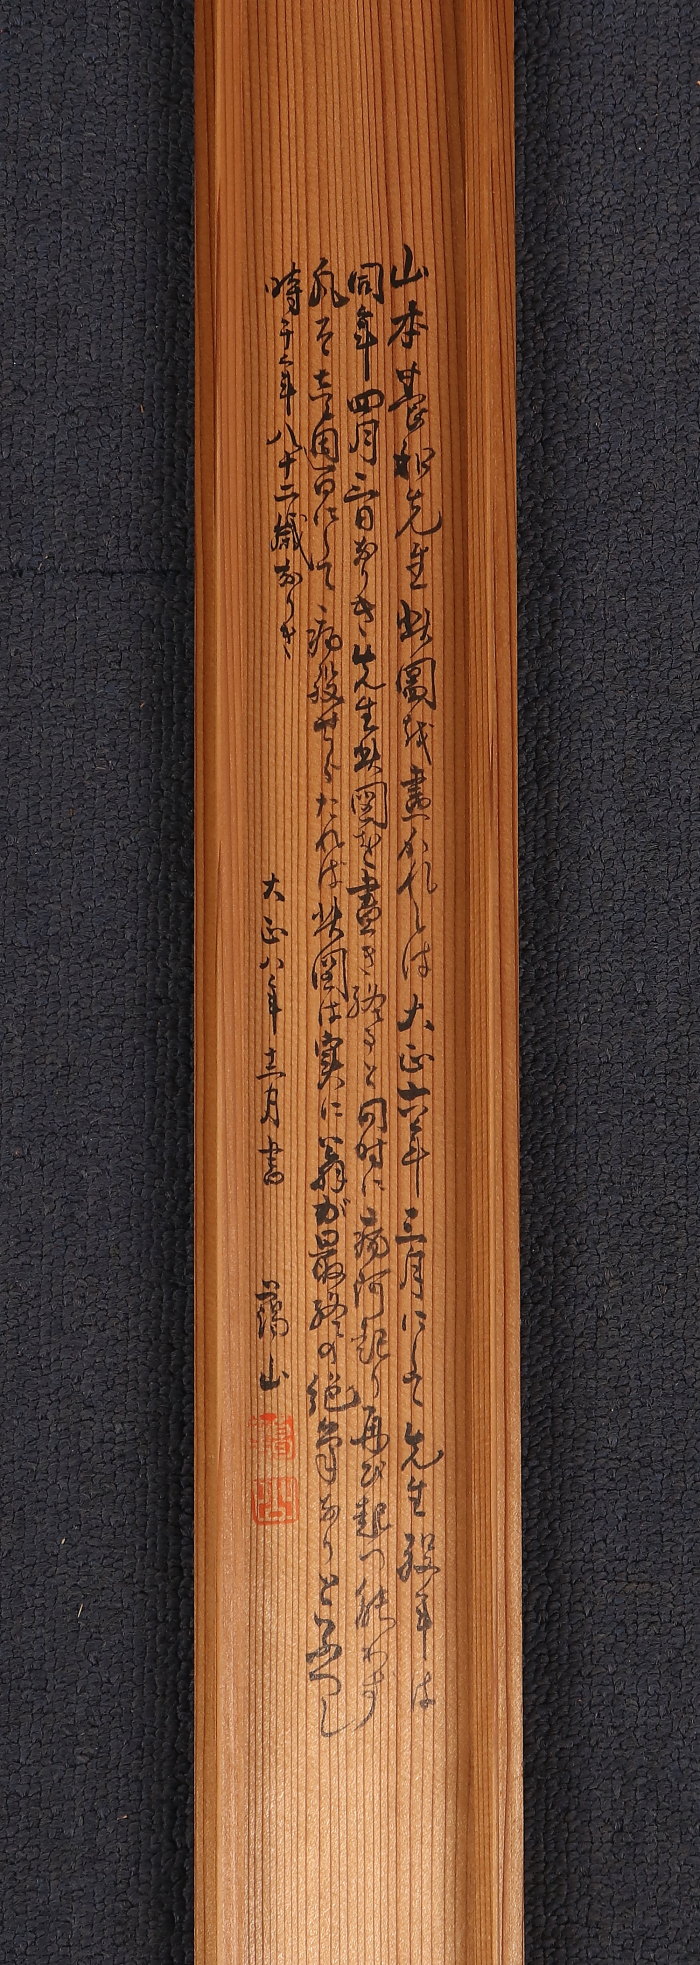 山本先生此圖越畫かれしは大正六年三月にして先生歿年は
同年四月三日なりき先生此図を畫き終ると同時に病起り再び起つ能わず
にして病歿せられたれは此図は実に翁が最終の絶筆なりと云へし
時于年八十二歳なりき
大正八年十二月書 藹山